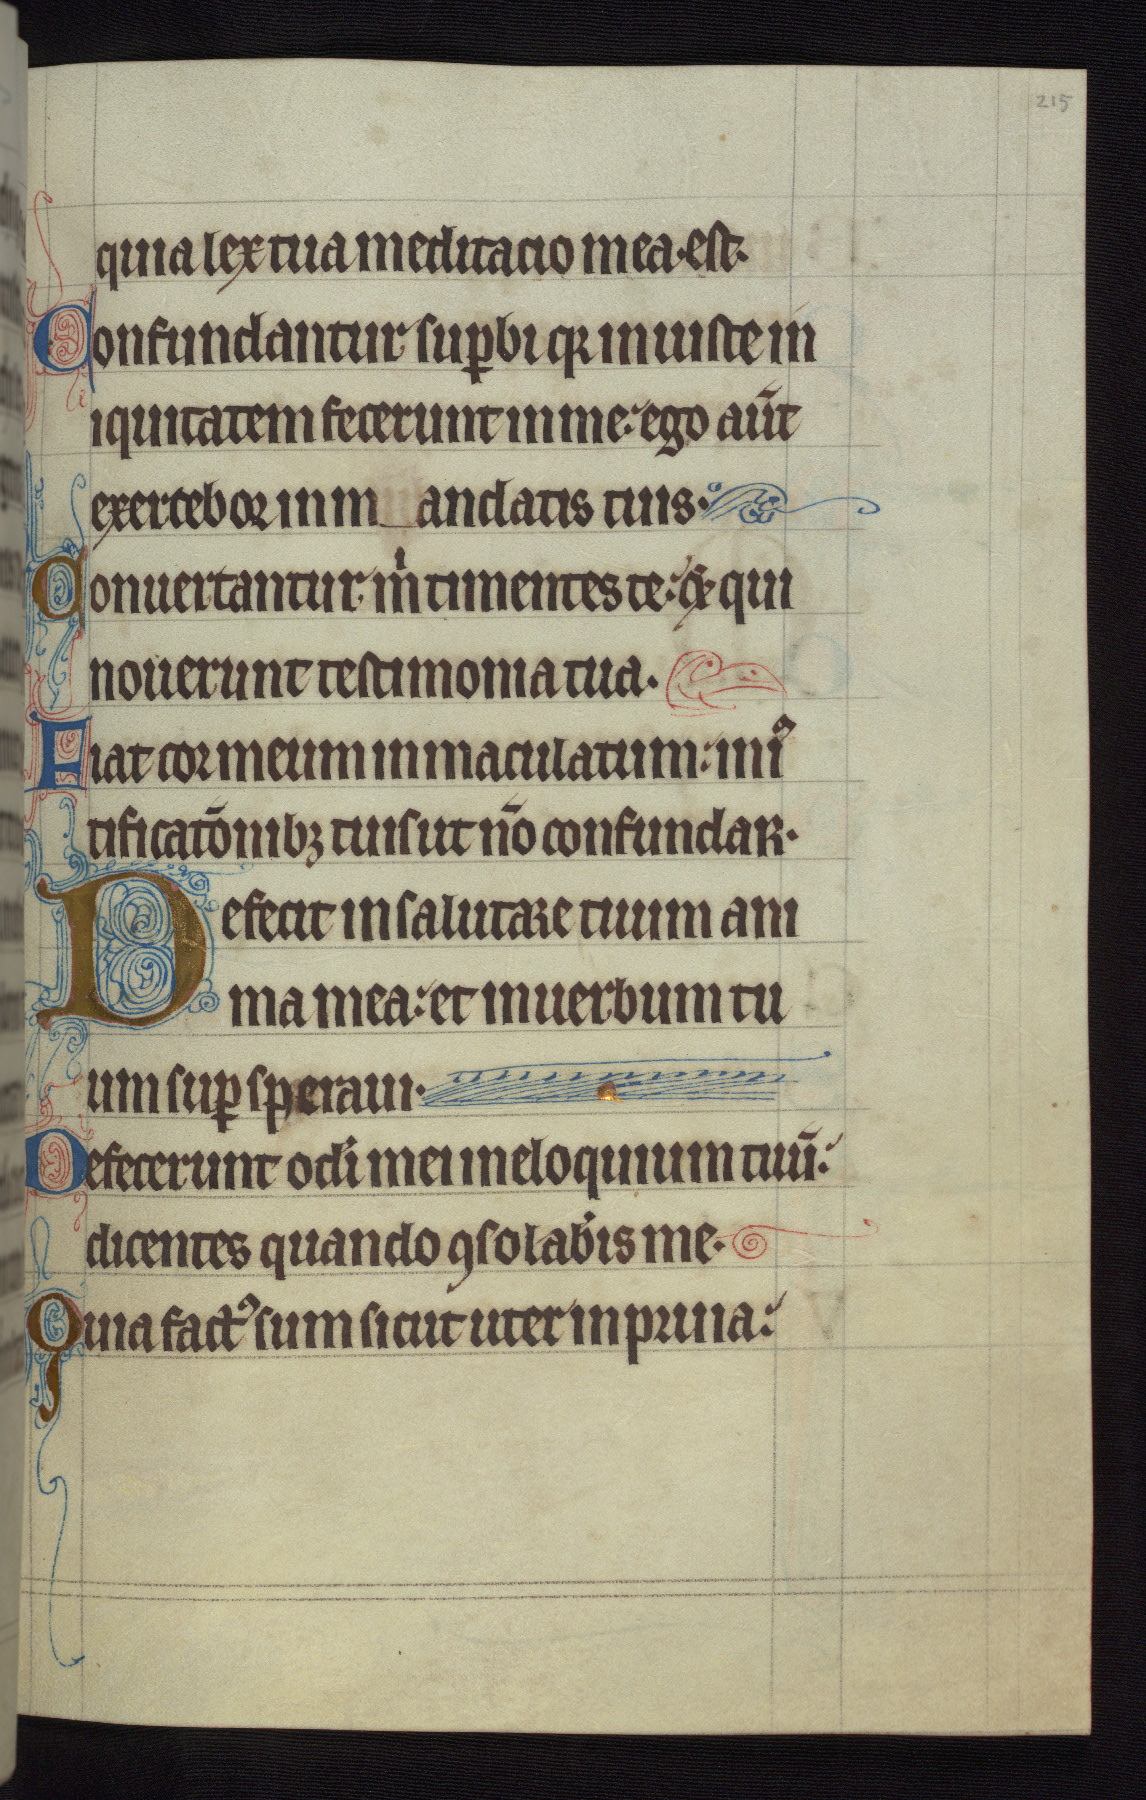 215
quia lex tua meditacio mea est.
Confundantur sup̱bi qꝛ iniuste in
iquitatem fecerunt in me: ego aūt
exercebor in m andatis tuis.
Conuertantur m̍ timentes te: ⁊ qui
nouerunt testimonia tua.
Fiat cor meum inmaculatum: in iꝰ
tificatōnibꝫ tuis ut nō confundar.
Defecit in salutare tuum ani
ma mea: et in uerbum tu
um suꝑ speraui.
Defecerunt oc̍li mei in eloquium tuū:
dicentes quando ꝯsolab̍is me.
Quia factꝰ sum sicut uter in pruina: